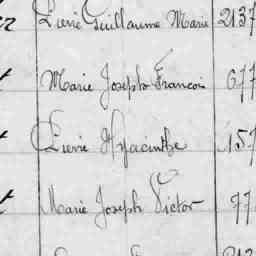 Pierre Guillaume Marie 2137
Marie Joseph François 677
Pierre Hyacinthe 157
Marie Joseph Victor 77